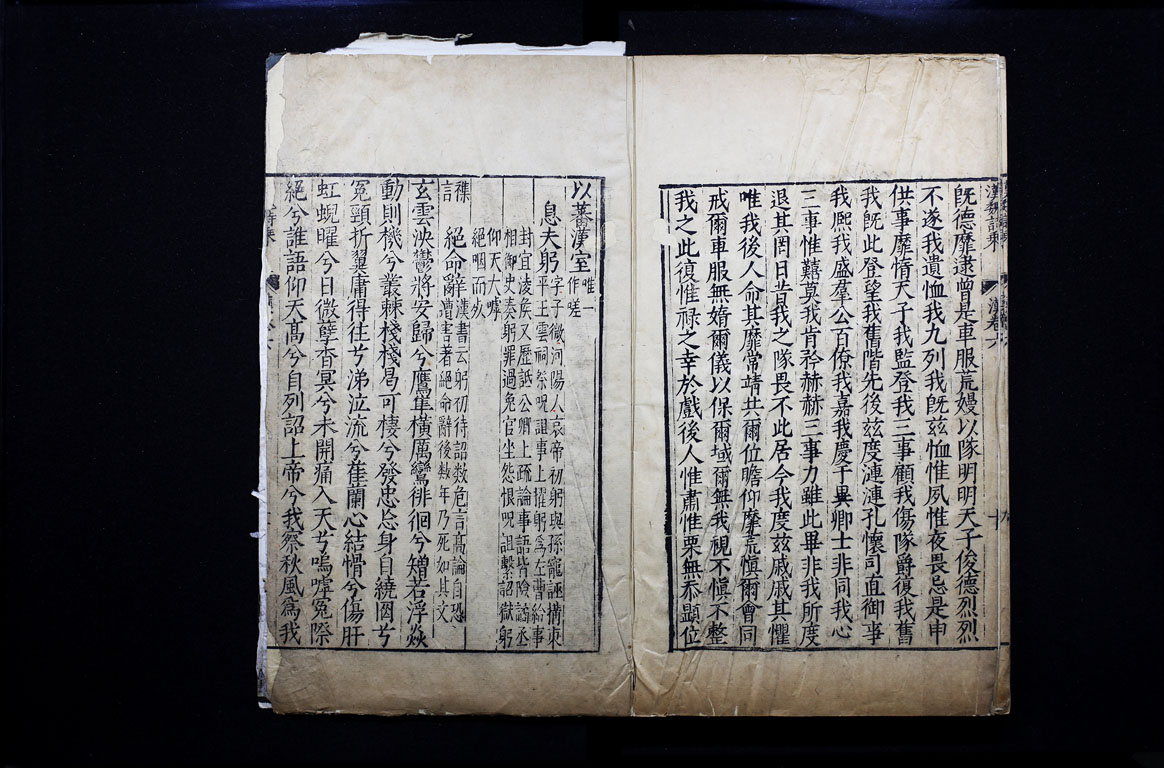 既德靡逮曾是車服荒嫚以隊明明天子俊德烈烈
不遂我遺恤我九列我既茲恤惟夙惟夜畏忌是申
供事靡惰天子我監登我三事顧我傷隊爵復我舊
我既此登望我舊階先後茲度漣漣孔懷司直御事
我熙我盛羣公百僚我嘉我慶于異卿士非同我心
三事惟囏莫我肯矜赫赫三事力雖此畢非我所度
退其罔日昔我之隊畏不此居今我度茲戚戚其懼
唯我後人命其靡常靖共爾位瞻仰靡荒慎爾會同
戒爾車服無媠爾儀以保爾域爾無我視不慎不整
我之此復惟祿之幸於戲後人惟肅惟栗無忝顯位
以蕃漢室唯一作嗟
息夫躬字子微河陽人哀帝初躬與孫寵誣搆東
平王雲祠祭呪詛事上擢躬為左曹給事
封宜淩矦又歷詆公卿上疏論事語皆險譎丞
相御史奏躬罪過免官坐怨恨呪詛繫詔獄躬
仰天大嘑
絕咽而死
絕命辭漢書云躬初待詔數危言高論自恐
遭害著絕命辭後數年乃死如其文
玄雲泱鬱將安歸兮鷹隼橫厲鸞徘徊兮矰若浮猋
動則機兮叢棘棧棧曷可棲兮發忠忘身自繞罔兮
冤頸折翼庸得往兮涕泣流兮萑蘭心結愲兮傷肝
虹蜺曜兮日微孽杳冥兮未開痛入天兮嗚嘑冤際
絕兮誰語仰天高兮自列詔上帝兮我察秋風為我